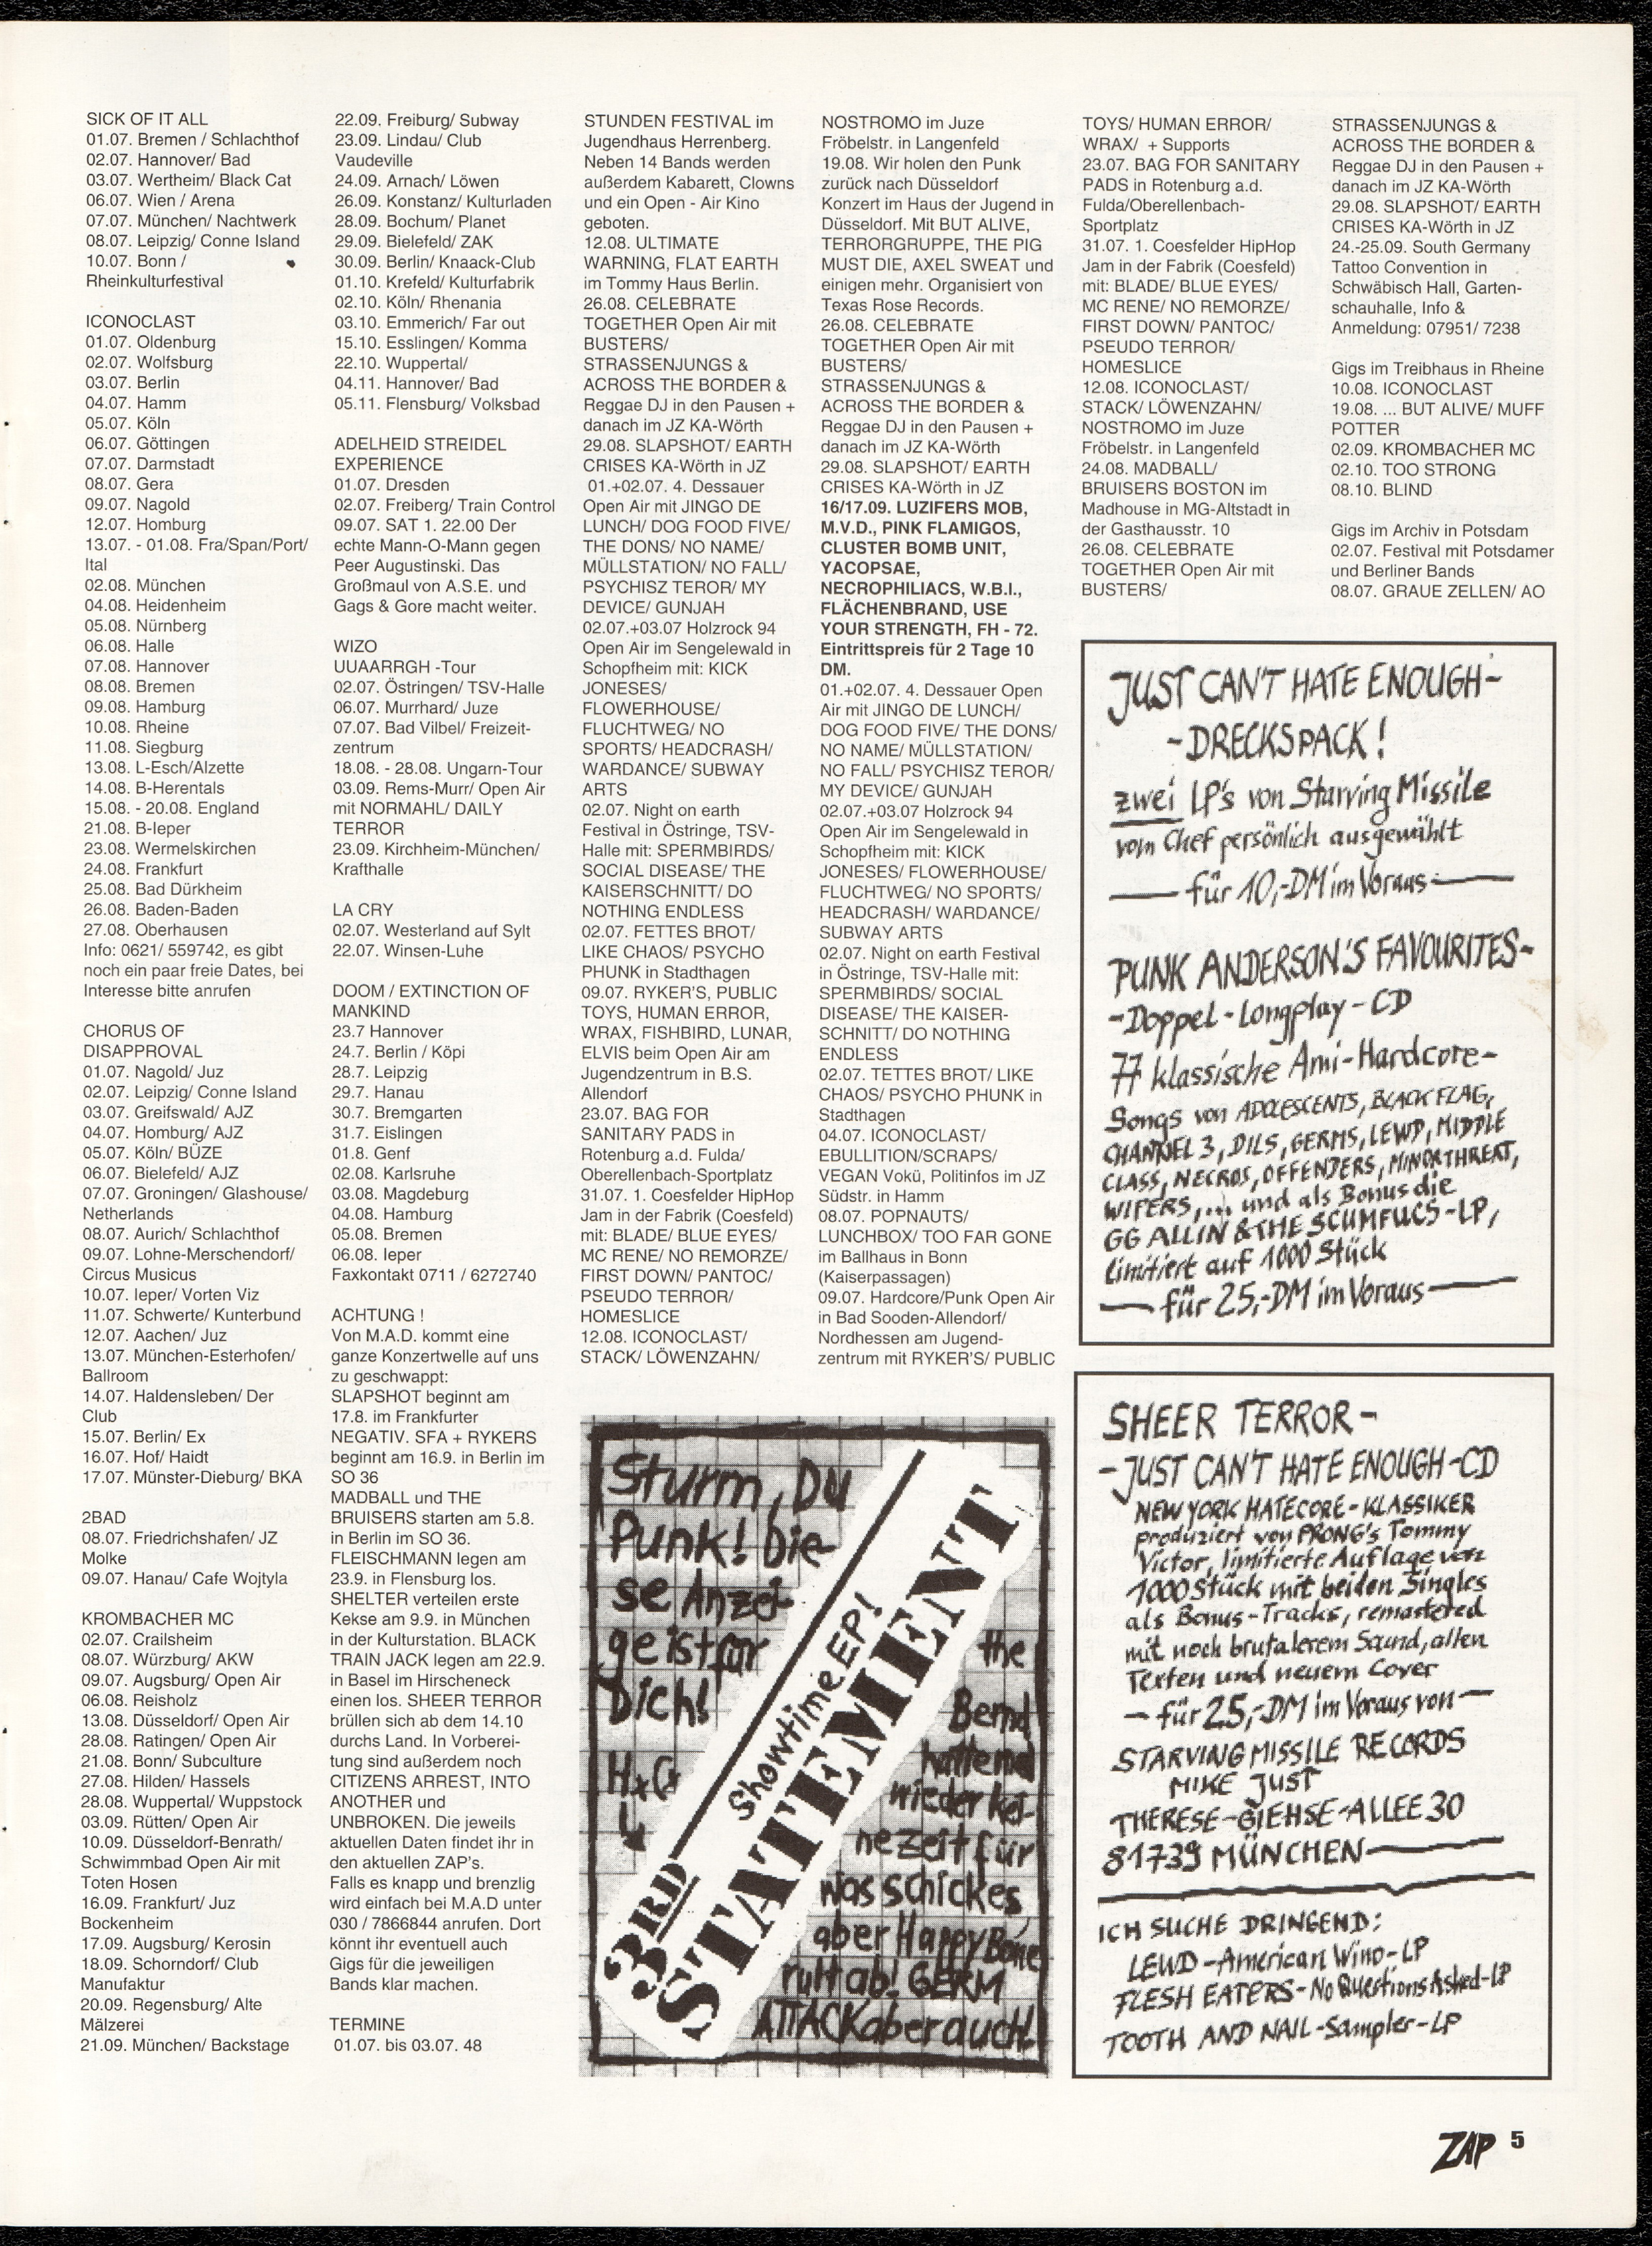 SICK OF IT ALL
01.07. Bremen / Schlachthof
02.07. Hannover/ Bad
03.07. Wertheim/ Black Cat
06.07. Wien / Arena
07.07. München/ Nachtwerk
08.07. Leipzig/ Conne Island
10.07. Bonn /
Rheinkulturfestival
ICONOCLAST
01.07. Oldenburg
02.07. Wolfsburg
03.07. Berlin
04.07. Hamm
05.07. Köln
06.07. Göttingen
07.07. Darmstadt
08.07. Gera
09.07. Nagold
12.07. Homburg
13.07. - 01.08. Fra/Span/Port/
Ital
02.08. München
04.08. Heidenheim
05.08. Nürnberg
06.08. Halle
07.08. Hannover
08.08. Bremen
09.08. Hamburg
10.08. Rheine
11.08. Siegburg
13.08. L-Esch/Alzette
14.08. B-Herentals
15.08. - 20.08. England
21.08. B-Ieper
23.08. Wermelskirchen
24.08. Frankfurt
25.08. Bad Dürkheim
26.08. Baden-Baden
27.08. Oberhausen
Info: 0621/ 559742, es gibt
noch ein paar freie Dates, bei
Interesse bitte anrufen
CHORUS OF
DISAPPROVAL
01.07. Nagold/ Juz
02.07. Leipzig/ Conne Island
03.07. Greifswald/ AJZ
04.07. Homburg/ AJZ
05.07. Köln/ BÜZE
06.07. Bielefeld/ AJZ
07.07. Groningen/ Glashouse/
Netherlands
08.07. Aurich/ Schlachthof
09.07. Lohne-Merschendorf/
Circus Musicus
10.07. Ieper/ Vorten Viz
11.07. Schwerte/ Kunterbund
12.07. Aachen/ Juz
13.07. München-Esterhofen/
Ballroom
14.07. Haldensleben/ Der
Club
15.07. Berlin/ Ex
16.07. Hof/ Haidt
17.07. Münster-Dieburg/ BKA
2BAD
08.07. Friedrichshafen/ JZ
Molke
09.07. Hanau/ Cafe Wojtyla
KROMBACHER MC
02.07. Crailsheim
08.07. Würzburg/ AKW
09.07. Augsburg/ Open Air
06.08. Reisholz
13.08. Düsseldorf/ Open Air
28.08. Ratingen/ Open Air
21.08. Bonn/ Subculture
27.08. Hilden/ Hassels
28.08. Wuppertal/ Wuppstock
03.09. Rütten/ Open Air
10.09. Düsseldorf-Benrath/
Schwimmbad Open Air mit
Toten Hosen
16.09. Frankfurt/ Juz
Bockenheim
17.09. Augsburg/ Kerosin
18.09. Schorndorf/ Club
Manufaktur
20.09. Regensburg/ Alte
Mälzerei
21.09. München/ Backstage
22.09. Freiburg/ Subway
23.09. Lindau/ Club
Vaudeville
24.09. Arnach/ Löwen
26.09. Konstanz/ Kulturladen
28.09. Bochum/ Planet
29.09. Bielefeld/ ZAK
30.09. Berlin/ Knaack-Club
01.10. Krefeld/ Kulturfabrik
02.10. Köln/ Rhenania
03.10. Emmerich/ Far out
15.10. Esslingen/ Komma
22.10. Wuppertal/
04.11. Hannover/ Bad
05.11. Flensburg/ Volksbad
ADELHEID STREIDEL
EXPERIENCE
01.07. Dresden
02.07. Freiberg/ Train Control
09.07. SAT 1. 22.00 Der
echte Mann-O-Mann gegen
Peer Augustinski. Das
Großmaul von A.S.E. und
Gags & Gore macht weiter.
WIZO
UUAARRGH -Tour
02.07. Östringen/ TSV-Halle
06.07. Murrhard/ Juze
07.07. Bad Vilbel/ Freizeit-
zentrum
18.08. - 28.08. Ungarn-Tour
03.09. Rems-Murr/ Open Air
mit NORMAHL/ DAILY
TERROR
23.09. Kirchheim-München/
Krafthalle
LA CRY
02.07. Westerland auf Sylt
22.07. Winsen-Luhe
DOOM / EXTINCTION OF
MANKIND
23.7 Hannover
24.7. Berlin / Köpi
28.7. Leipzig
29.7. Hanau
30.7. Bremgarten
31.7. Eislingen
01.8. Genf
02.08. Karlsruhe
03.08. Magdeburg
04.08. Hamburg
05.08. Bremen
06.08. Ieper
Faxkontakt 0711 / 6272740
ACHTUNG !
Von M.A.D. kommt eine
ganze Konzertwelle auf uns
zu geschwappt:
SLAPSHOT beginnt am
17.8. im Frankfurter
NEGATIV. SFA + RYKERS
beginnt am 16.9. in Berlin im
SO 36
MADBALL und THE
BRUISERS starten am 5.8.
in Berlin im SO 36.
FLEISCHMANN legen am
23.9. in Flensburg los.
SHELTER verteilen erste
Kekse am 9.9. in München
in der Kulturstation. BLACK
TRAIN JACK legen am 22.9.
in Basel im Hirscheneck
einen los. SHEER TERROR
brüllen sich ab dem 14.10
durchs Land. In Vorberei-
tung sind außerdem noch
CITIZENS ARREST, INTO
ANOTHER und
UNBROKEN. Die jeweils
aktuellen Daten findet ihr in
den aktuellen ZAP's.
Falls es knapp und brenzlig
wird einfach bei M.A.D unter
030 / 7866844 anrufen. Dort
könnt ihr eventuell auch
Gigs für die jeweiligen
Bands klar machen.
TERMINE
01.07. bis 03.07. 48
STUNDEN FESTIVAL im
Jugendhaus Herrenberg.
Neben 14 Bands werden
außerdem Kabarett, Clowns
und ein Open - Air Kino
geboten.
12.08. ULTIMATE
WARNING, FLAT EARTH
im Tommy Haus Berlin.
26.08. CELEBRATE
TOGETHER Open Air mit
BUSTERS/
STRASSENJUNGS &
ACROSS THE BORDER &
Reggae DJ in den Pausen +
danach im JZ KA-Wörth
29.08. SLAPSHOT/ EARTH
CRISES KA-Wörth in JZ
01.+02.07. 4. Dessauer
Open Air mit JINGO DE
LUNCH/ DOG FOOD FIVE/
THE DONS/ NO NAME/
MÜLLSTATION/ NO FALL/
PSYCHISZ TEROR/ MY
DEVICE/ GUNJAH
02.07.+03.07 Holzrock 94
Open Air im Sengelewald in
Schopfheim mit: KICK
JONESES/
FLOWERHOUSE/
FLUCHTWEG/ NO
SPORTS/ HEADCRASH/
WARDANCE/ SUBWAY
ARTS
02.07. Night on earth
Festival in Östringe, TSV-
Halle mit: SPERMBIRDS/
SOCIAL DISEASE/ THE
KAISERSCHNITT/ DO
NOTHING ENDLESS
02.07. FETTES BROT/
LIKE CHAOS/ PSYCHO
PHUNK in Stadthagen
09.07. RYKER'S, PUBLIC
TOYS, HUMAN ERROR,
WRAX, FISHBIRD, LUNAR,
ELVIS beim Open Air am
Jugendzentrum in B.S.
Allendorf
23.07. BAG FOR
SANITARY PADS in
Rotenburg a.d. Fulda/
Oberellenbach-Sportplatz
31.07. 1. Coesfelder HipHop
Jam in der Fabrik (Coesfeld)
mit: BLADE/ BLUE EYES/
MC RENE/ NO REMORZE/
FIRST DOWN/ PANTOC/
PSEUDO TERROR/
HOMESLICE
12.08. ICONOCLAST/
STACK/ LÖWENZAHN/
NOSTROMO im Juze
Fröbelstr. in Langenfeld
19.08. Wir holen den Punk
zurück nach Düsseldorf
Konzert im Haus der Jugend in
Düsseldorf. Mit BUT ALIVE,
TERRORGRUPPE, THE PIG
MUST DIE, AXEL SWEAT und
einigen mehr. Organisiert von
Texas Rose Records.
26.08. CELEBRATE
TOGETHER Open Air mit
BUSTERS/
STRASSENJUNGS &
ACROSS THE BORDER &
Reggae DJ in den Pausen +
danach im JZ KA-Wörth
29.08. SLAPSHOT/ EARTH
CRISES KA-Wörth in JZ
16/17.09. LUZIFERS MOB,
M.V.D., PINK FLAMIGOS,
CLUSTER BOMB UNIT,
YACOPSAE,
NECROPHILIACS, W.B.I.,
FLÄCHENBRAND, USE
YOUR STRENGTH, FH - 72.
Eintrittspreis für 2 Tage 10
DM.
01.+02.07. 4. Dessauer Open
Air mit JINGO DE LUNCH/
DOG FOOD FIVE/ THE DONS/
NO NAME/ MÜLLSTATION/
NO FALL/ PSYCHISZ TEROR/
MY DEVICE/ GUNJAH
02.07.+03.07 Holzrock 94
Open Air im Sengelewald in
Schopfheim mit: KICK
JONESES/ FLOWERHOUSE/
FLUCHTWEG/ NO SPORTS/
HEADCRASH/ WARDANCE/
SUBWAY ARTS
02.07. Night on earth Festival
in Östringe, TSV-Halle mit:
SPERMBIRDS/ SOCIAL
DISEASE/ THE KAISER-
SCHNITT/ DO NOTHING
ENDLESS
02.07. TETTES BROT/ LIKE
CHAOS/ PSYCHO PHUNK in
Stadthagen
04.07. ICONOCLAST/
EBULLITION/SCRAPS/
VEGAN Vokü, Politinfos im JZ
Südstr. in Hamm
08.07. POPNAUTS/
LUNCHBOX/ TOO FAR GONE
im Ballhaus in Bonn
(Kaiserpassagen)
09.07. Hardcore/Punk Open Air
in Bad Sooden-Allendorf/
Nordhessen am Jugend-
zentrum mit RYKER'S/ PUBLIC
TOYS/ HUMAN ERROR/
WRAX/ + Supports
23.07. BAG FOR SANITARY
PADS in Rotenburg a.d.
Fulda/Oberellenbach-
Sportplatz
31.07. 1. Coesfelder HipHop
Jam in der Fabrik (Coesfeld)
mit: BLADE/ BLUE EYES/
MC RENE/ NO REMORZE/
FIRST DOWN/ PANTOC/
PSEUDO TERROR/
HOMESLICE
12.08. ICONOCLAST/
STACK/ LÖWENZAHN/
NOSTROMO im Juze
Fröbelstr. in Langenfeld
24.08. MADBALL/
BRUISERS BOSTON im
Madhouse in MG-Altstadt in
der Gasthausstr. 10
26.08. CELEBRATE
TOGETHER Open Air mit
BUSTERS/
STRASSENJUNGS &
ACROSS THE BORDER &
Reggae DJ in den Pausen +
danach im JZ KA-Wörth
29.08. SLAPSHOT/ EARTH
CRISES KA-Wörth in JZ
24.-25.09. South Germany
Tattoo Convention in
Schwäbisch Hall, Garten-
schauhalle, Info &
Anmeldung: 07951/ 7238
Gigs im Treibhaus in Rheine
10.08. ICONOCLAST
19.08. ... BUT ALIVE/ MUFF
POTTER
02.09. KROMBACHER MC
02.10. TOO STRONG
08.10. BLIND
Gigs im Archiv in Potsdam
02.07. Festival mit Potsdamer
und Berliner Bands
08.07. GRAUE ZELLEN/ AO
JUST CAN'T HATE ENOUGH-
-DRECKSPACK!
zwei LP's von Starving Missile
vom Chef persönlich ausgewählt
— für 10,-DM im Voraus —
PUNK ANDERSON'S FAVOURITES-
-Doppel-Longplay-CD
77 klassische Ami-Hardcore-
Songs von ADOLESCENTS, BLACK FLAG,
CHANNEL 3, DILS, GERMS, LEWD, MIDDLE
CLASS, NECROS, OFFENDERS, MINOR THREAT,
WIPERS,... und als Bonus die
GG ALLIN & THE SCUMFUCS-LP,
limitiert auf 1000 Stück
— für 25,-DM im Voraus —
SHEER TERROR-
-JUST CAN'T HATE ENOUGH-CD
NEW YORK HATECORE-KLASSIKER
produziert von PRONG's Tommy
Victor, limitierte Auflage von
1000 Stück mit beiden Singles
als Bonus-Tracks, remastered
mit noch brutalerem Sound, allen
Texten und neuem Cover
— für 25,-DM im Voraus von —
STARVING MISSILE RECORDS
MIKE JUST
THERESE-GIEHSE-ALLEE 30
81739 MÜNCHEN
ICH SUCHE DRINGEND:
LEWD -American Wino-LP
FLESH EATERS-No Questions Asked-LP
TOOTH AND NAIL-Sampler-LP
Sturm, Du
Punk! Die-
se Anzei-
ge ist für
Dich!
HxC
Showtime EP!
3RD STATEMENT
the
Bernd
hatte mal
wieder kei-
ne Zeit für
was schickes,
aber Happy Bone
rult ab! GERM
ATTACK aber auch!
ZAP 5